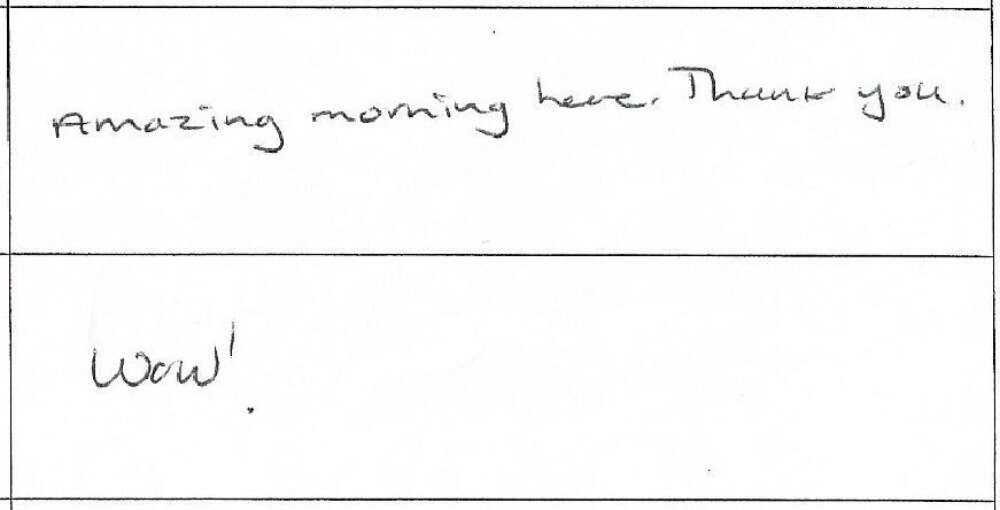 Amazing morning here. Thank you.
Wow!